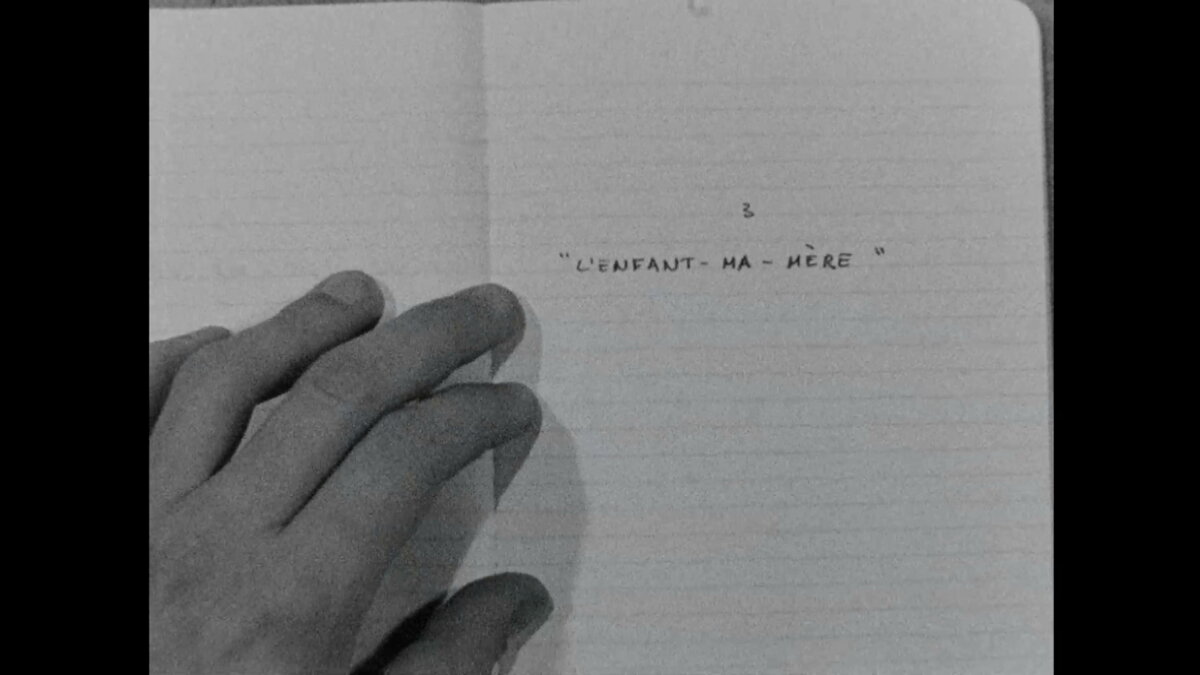 3
"L'ENFANT-MA-MÈRE"